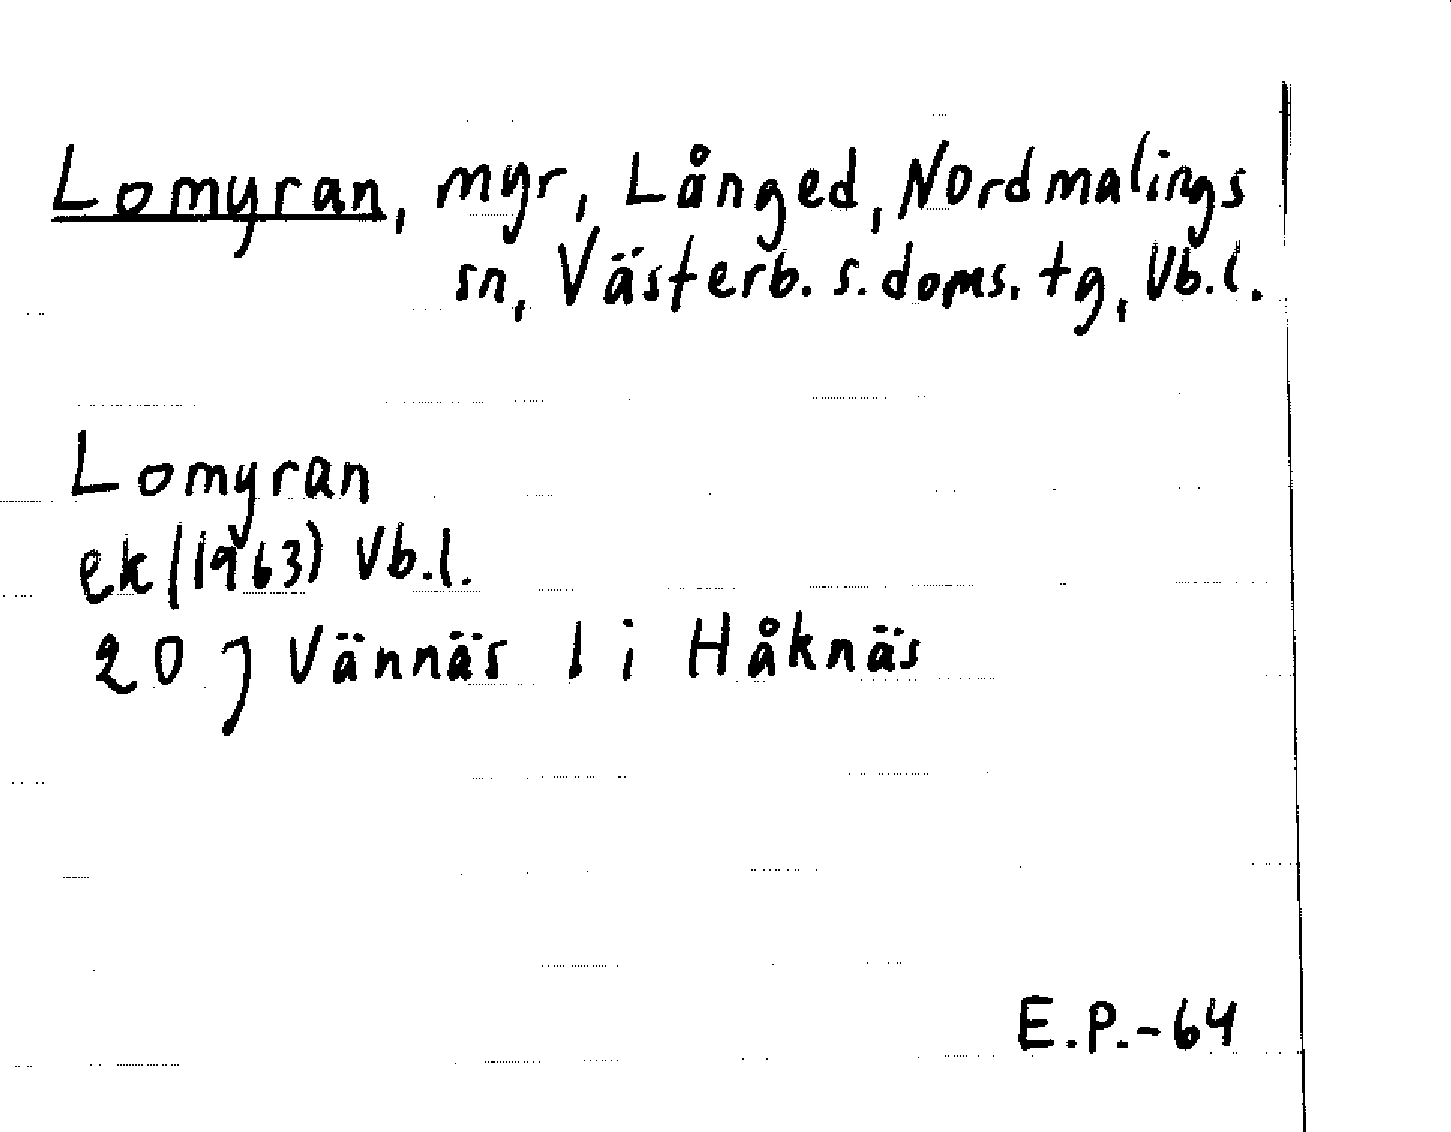 Lomyran, myr, Långed, Nordmalings
sn, Västerb. s. doms. tg, Vb.l.
Lomyran
ek (1963) Vb.l.
20 J Vännäs 1 i Håknäs
E.P.-64